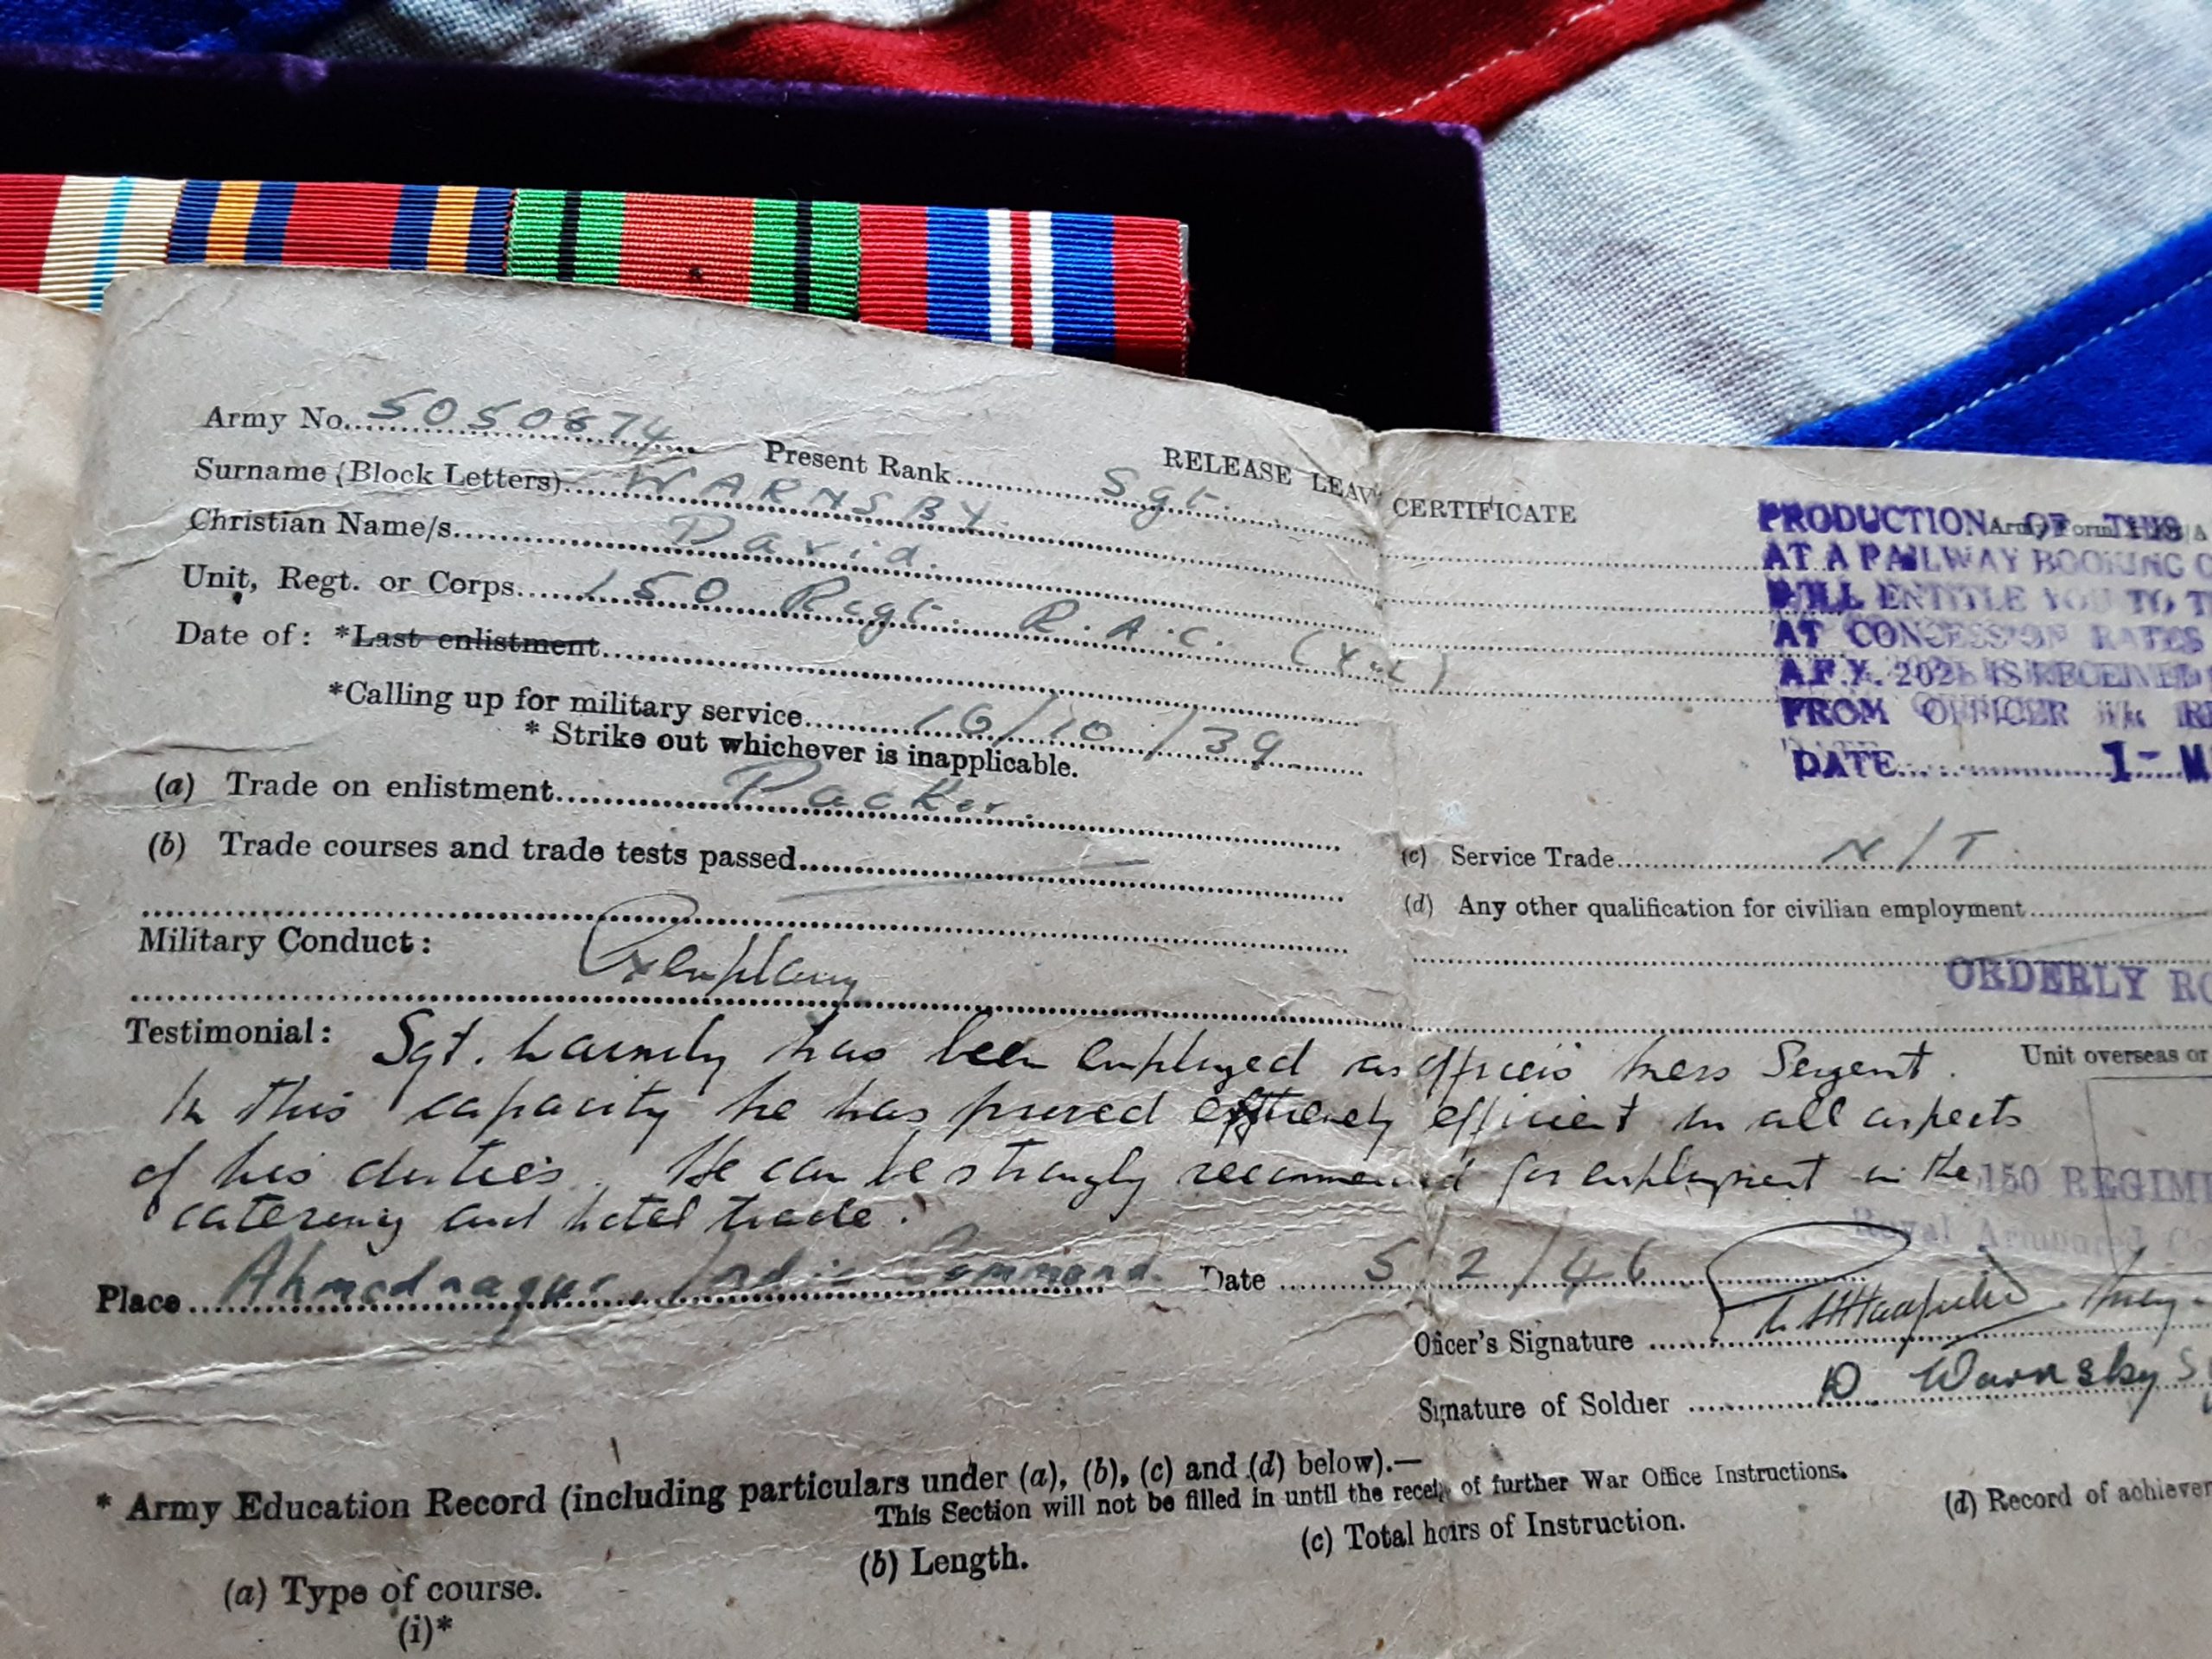 RELEASE LEAV CERTIFICATE
Army No. 5050874 Present Rank Sgt.
Surname (Block Letters) WARNSBY.
Christian Name/s David.
Unit, Regt. or Corps 150 Regt. R.A.C. (
Date of: *Last enlistment
*Calling up for military service 16/10/39
* Strike out whichever is inapplicable.
(a) Trade on enlistment Packer.
(b) Trade courses and trade tests passed
PRODUCTION OF THIS
Army Form
AT A RAILWAY BOOKING
WILL ENTITLE YOU TO T
AT CONCESSION RATES
A.F.X. 202 IS RECEIVED
FROM OFFICER i/c RE
DATE 1- M
(c) Service Trade N/T.
(d) Any other qualification for civilian employment
Military Conduct: Exemplary
ORDERLY RO
Testimonial: Sgt. Warnsby has been employed as officers mess Sergent.
Unit overseas or
In this capacity he has proved extremely efficient in all aspects
of his duties. He can be strongly recommended for employment in the
catering and hotel trade.
150 REGIM
Royal Armoured Co
Place Ahmednagar, India Command. Date 5/2/46
Officer's Signature
Signature of Soldier D Warnsby S
* Army Education Record (including particulars under (a), (b), (c) and (d) below).—
This Section will not be filled in until the receip of further War Office Instructions.
(a) Type of course. (b) Length. (c) Total hours of Instruction. (d) Record of achievem
(i)*